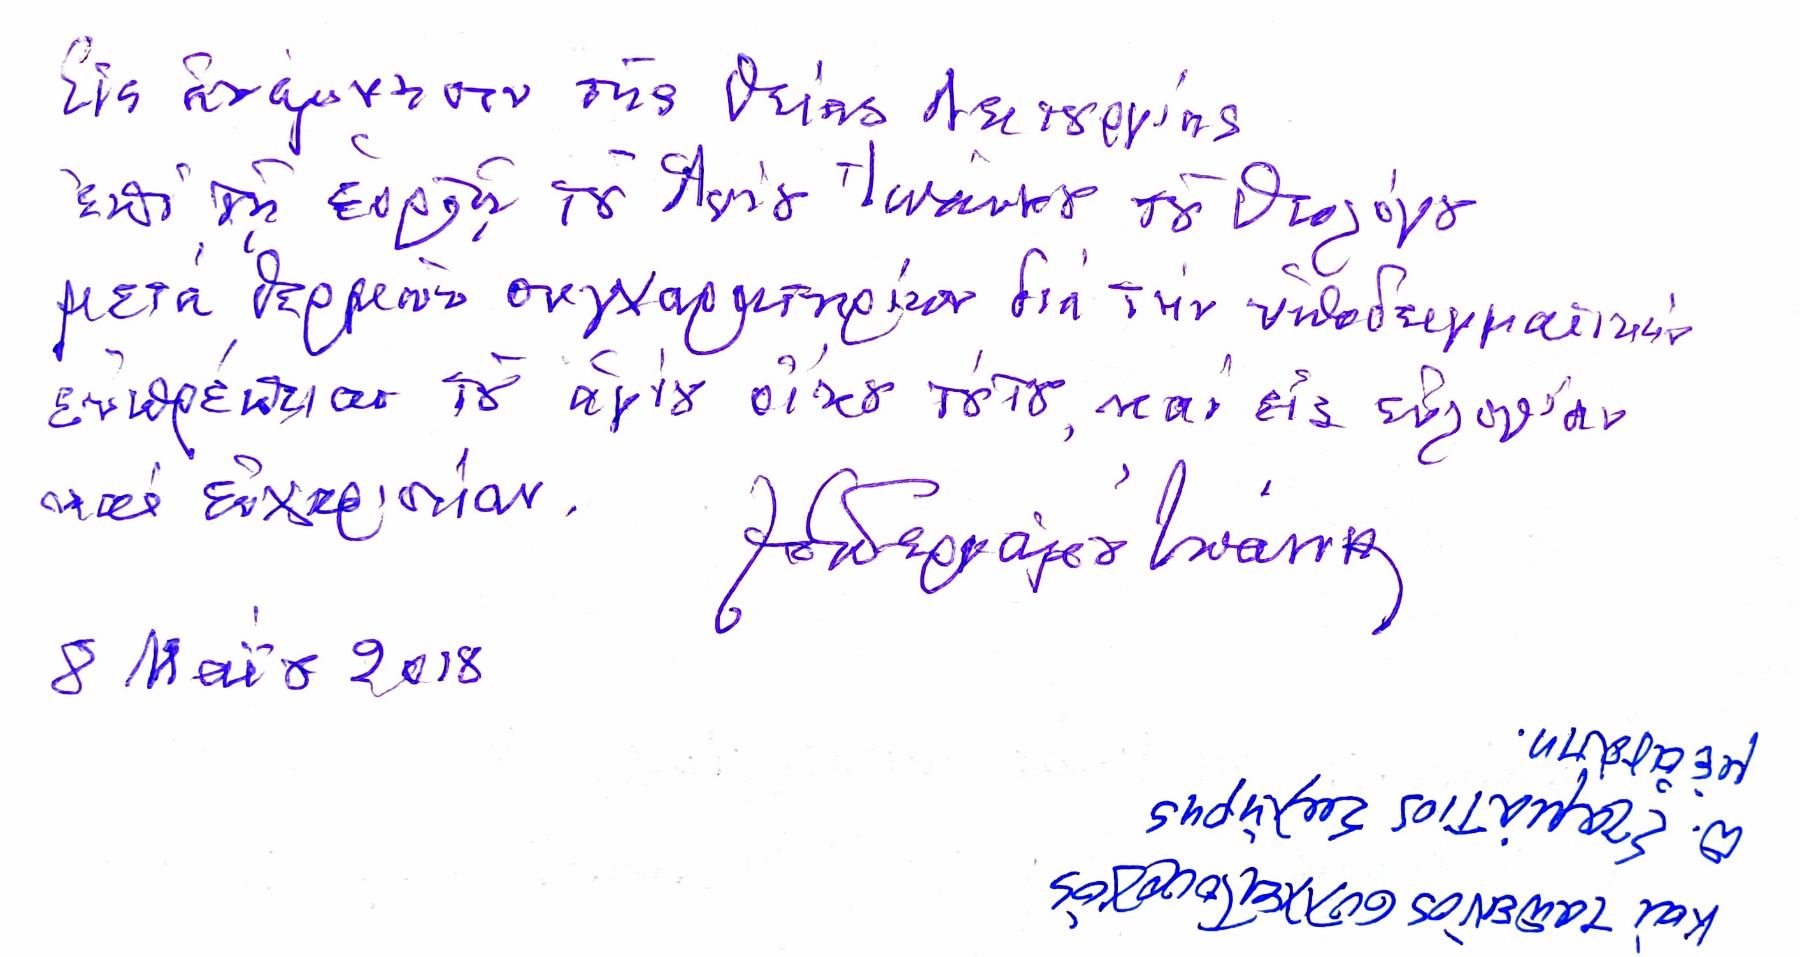 Εἰς ἀνάμνησιν τῆς θείας Λειτουργίας
ἐπὶ τῇ ἑορτῇ τοῦ Ἁγίου Ἰωάννου τοῦ Θεολόγου
μετὰ θερμῶν συγχαρητηρίων διὰ τὴν ὑποδειγματικὴν
εὐπρέπειαν τοῦ ἁγίου οἴκου τούτου, καὶ εἰς εὐλογίαν
καὶ εὐχαριστίαν.
† ὁ Περγάμου Ἰωάννης
8 Μαΐου 2018
Καὶ ταπεινὸς συλλειτουργὸς
π. Σταμάτιος Σκλήρης
μὲ ἀγάπη.